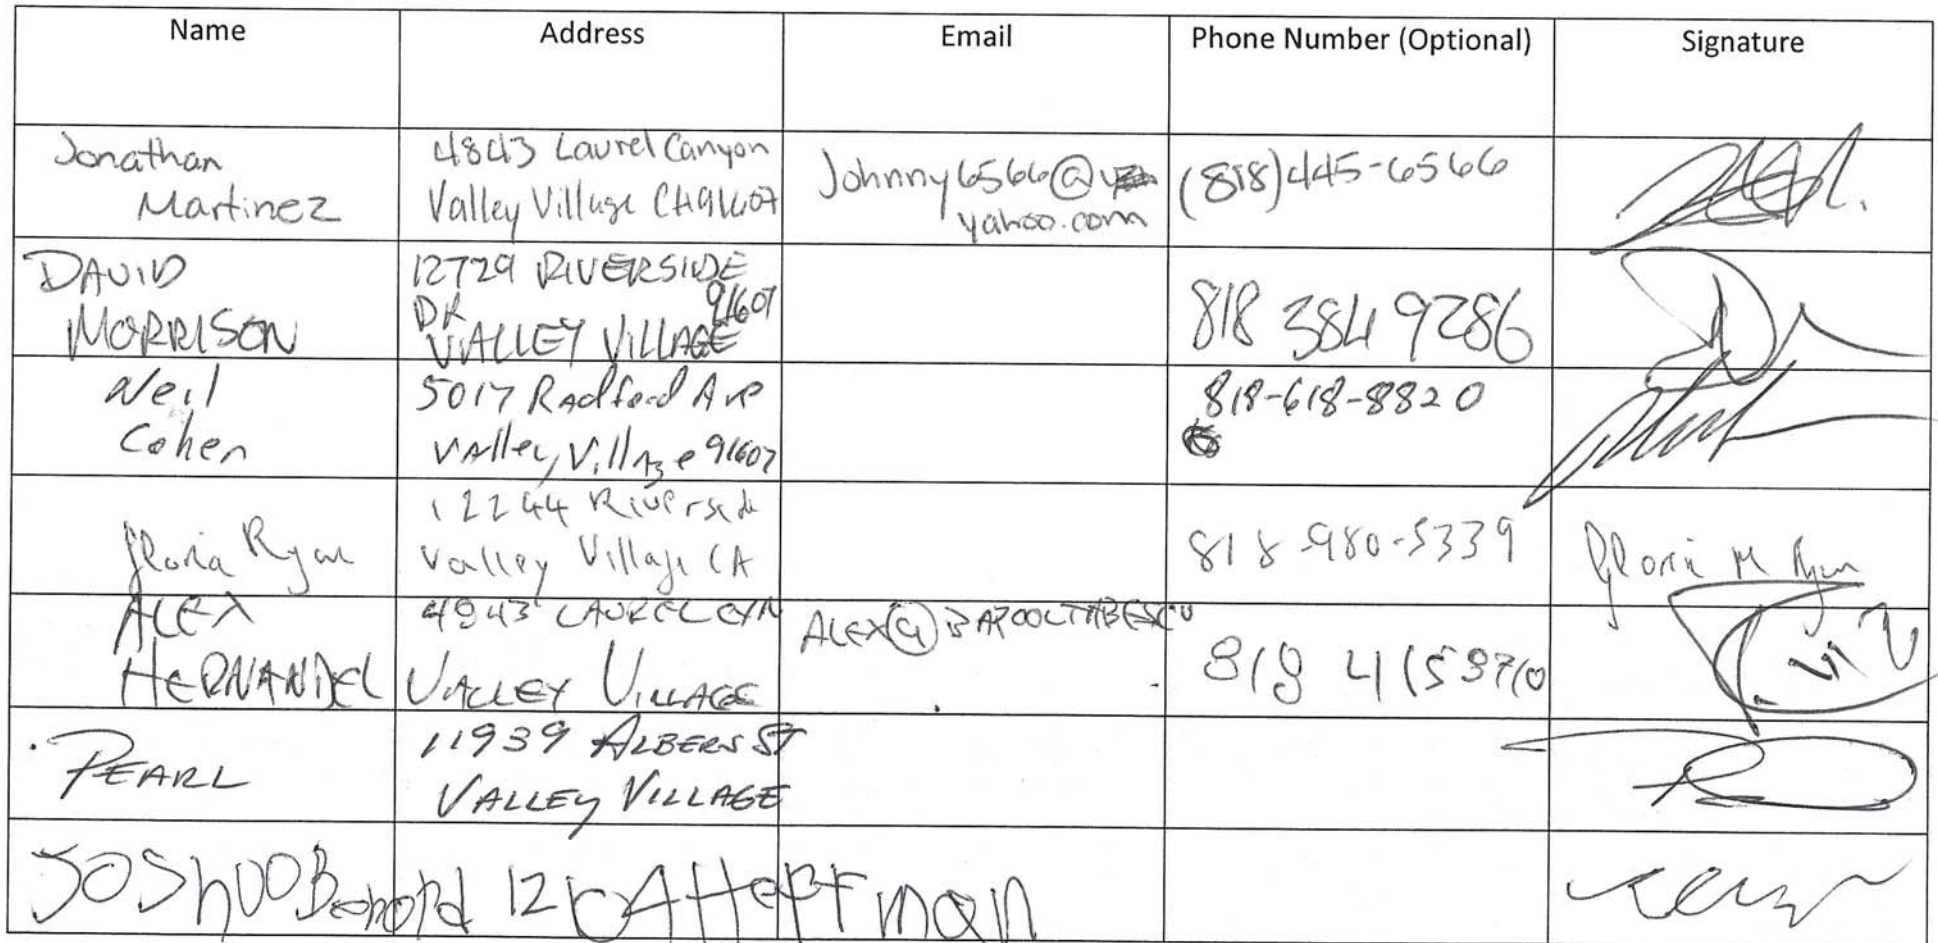 Name Address Email Phone Number (Optional) Signature
Jonathan
Martinez
4843 Laurel Canyon
Valley Village CA 91607
Johnny6566@
yahoo.com
(818)445-6566
DAVID
MORRISON
12729 RIVERSIDE
DR 91607
VALLEY VILLAGE
818 384 9286
Neil
Cohen
5017 Radford Ave
Valley Village 91607
818-618-8820
Gloria Ryan
12244 Riverside
Valley Village CA
818-980-5339
Gloria M Ryan
ALEX
HERNANDEZ
4843 LAUREL CYN
VALLEY VILLAGE
ALEX@
818 415
PEARL
11939 ALBERS ST
VALLEY VILLAGE